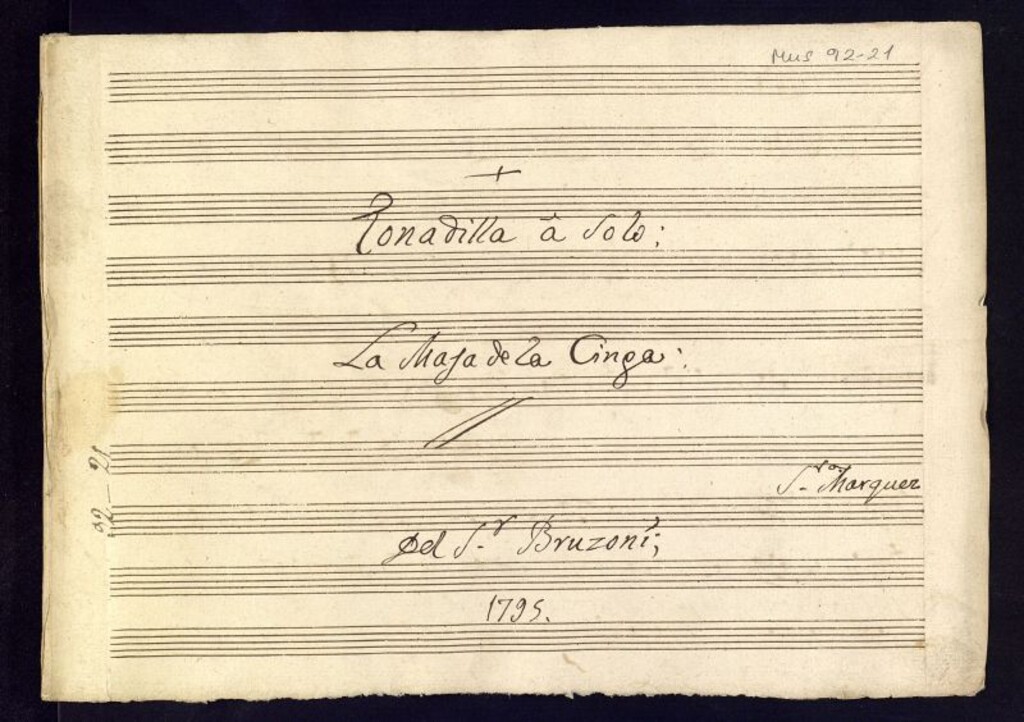 Mus 92-21
+
Tonadilla â Solo;
La Maja de la Cinga:
S.ra Marquez
Del S.r Bruzoni;
1795.
92-21